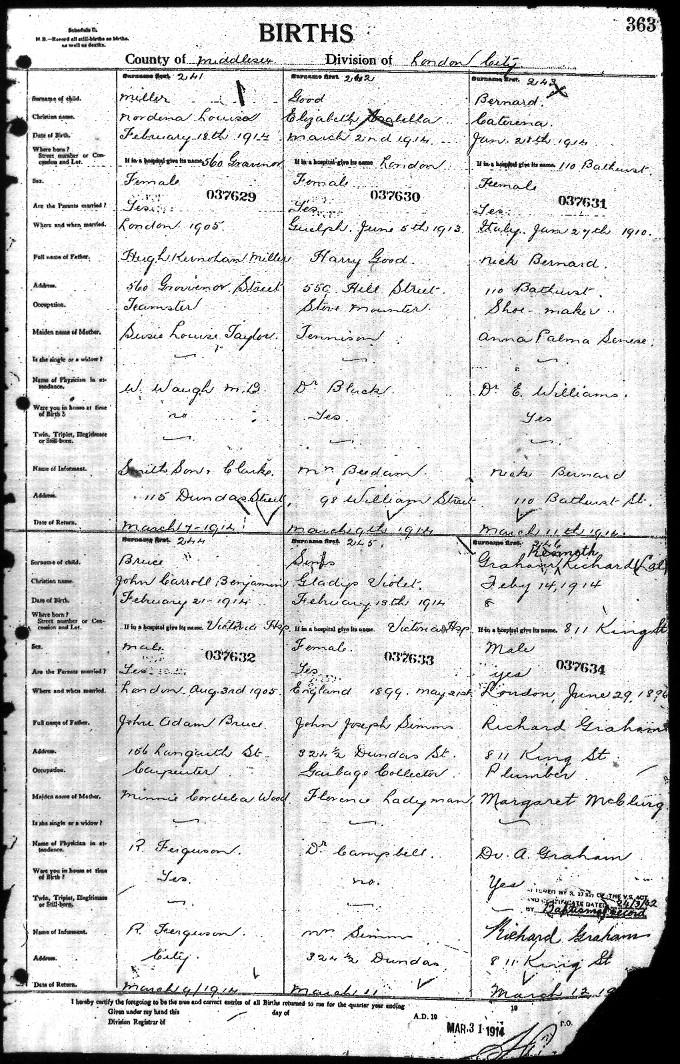 Schedule C.
N. B.—Record all still-births as births, as well as deaths.
BIRTHS
363
County of Middlesex Division of London City
Surname first. 241 Surname first. 242 Surname first. 243
Surname of child. Miller Good Bernard.
Christian name. Nordena Louisa Elizabeth Isabella Caterina.
Date of Birth. February 18th 1914 March 2nd 1914 Jan. 28th 1914
Where born? Street number or Concession and Lot. If in a hospital give its name 560 Grosvenor If in a hospital give its name London If in a hospital give its name. 110 Bathurst.
Sex. Female Female Female
037629 037630 037631
Are the Parents married? Yes Yes Yes
Where and when married. London 1905. Guelph. June 5th 1913. Italy. Jan 27th 1910.
Full name of Father. Hugh Kernohan Miller Harry Good. Nick Bernard.
Address. 560 Grosvenor Street 559 Hill Street 110 Bathurst.
Occupation. Teamster Stove Mounter Shoe-maker
Maiden name of Mother. Susie Louise Taylor. Tennison Anna Palma
Is she single or a widow? — — —
Name of Physician in attendance. W. Waugh M.D Dr Black Dr E. Williams.
Were you in house at time of Birth? no Yes. Yes
Twin, Triplet, Illegitimate or Still-born. — — —
Name of Informant. Smith Son & Clarke. Beedam. Nick Bernard
Address. 115 Dundas Street, 98 William Street 110 Bathurst St.
Date of Return. March 17-1914 March 9th 1914 March 11th 1914.
Surname first. 244 Surname first. 245. Surname first. 246
Kenneth
Surname of child. Bruce Simms Graham, Richard
Christian name. John Carroll Benjamin Gladys Violet. Feby 14, 1914
Date of Birth. February 21-1914 February 13th 1914 8
Where born? Street number or Concession and Lot. If in a hospital give its name. Victoria Hsp. If in a hospital give its name. Victoria Hsp If in a hospital give its name. 811 King St
Sex. Male Female. Male
037632 037633 037634
Are the Parents married? Yes Yes yes
Where and when married. London. Aug. 3rd 1905. England 1899. May 21st London, June 29, 1896
Full name of Father. John Adam Bruce John Joseph Simms Richard Graham
Address. 156 Langarth St. 324½ Dundas St. 811 King St
Occupation. Carpenter Garbage Collector Plumber
Maiden name of Mother. Minnie Cordelia Wood Florence Ladyman Margaret McClurg.
Is she single or a widow? — — —
Name of Physician in attendance. R. Ferguson. Dr Campbell. Dr. A. Graham
Were you in house at time of Birth? Yes. no. Yes
24/3/42
Baptismal record
Twin, Triplet, Illegitimate or Still-born. — — —
Name of Informant. R. Ferguson. Simms Richard Graham
Address. City. 324½ Dundas 811 King St
Date of Return. March 9/1914 March 11 March 12, 19
I hereby certify the foregoing to be the true and correct entries of all Births returned to me for the quarter year ending 19
Given under my hand this day of A.D. 19
Division Registrar of P.O.
MAR 31 1914